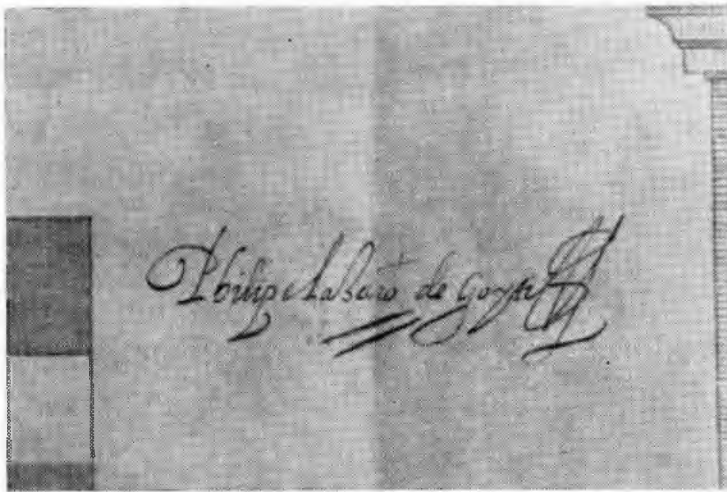 Philipe laSaro de goyti